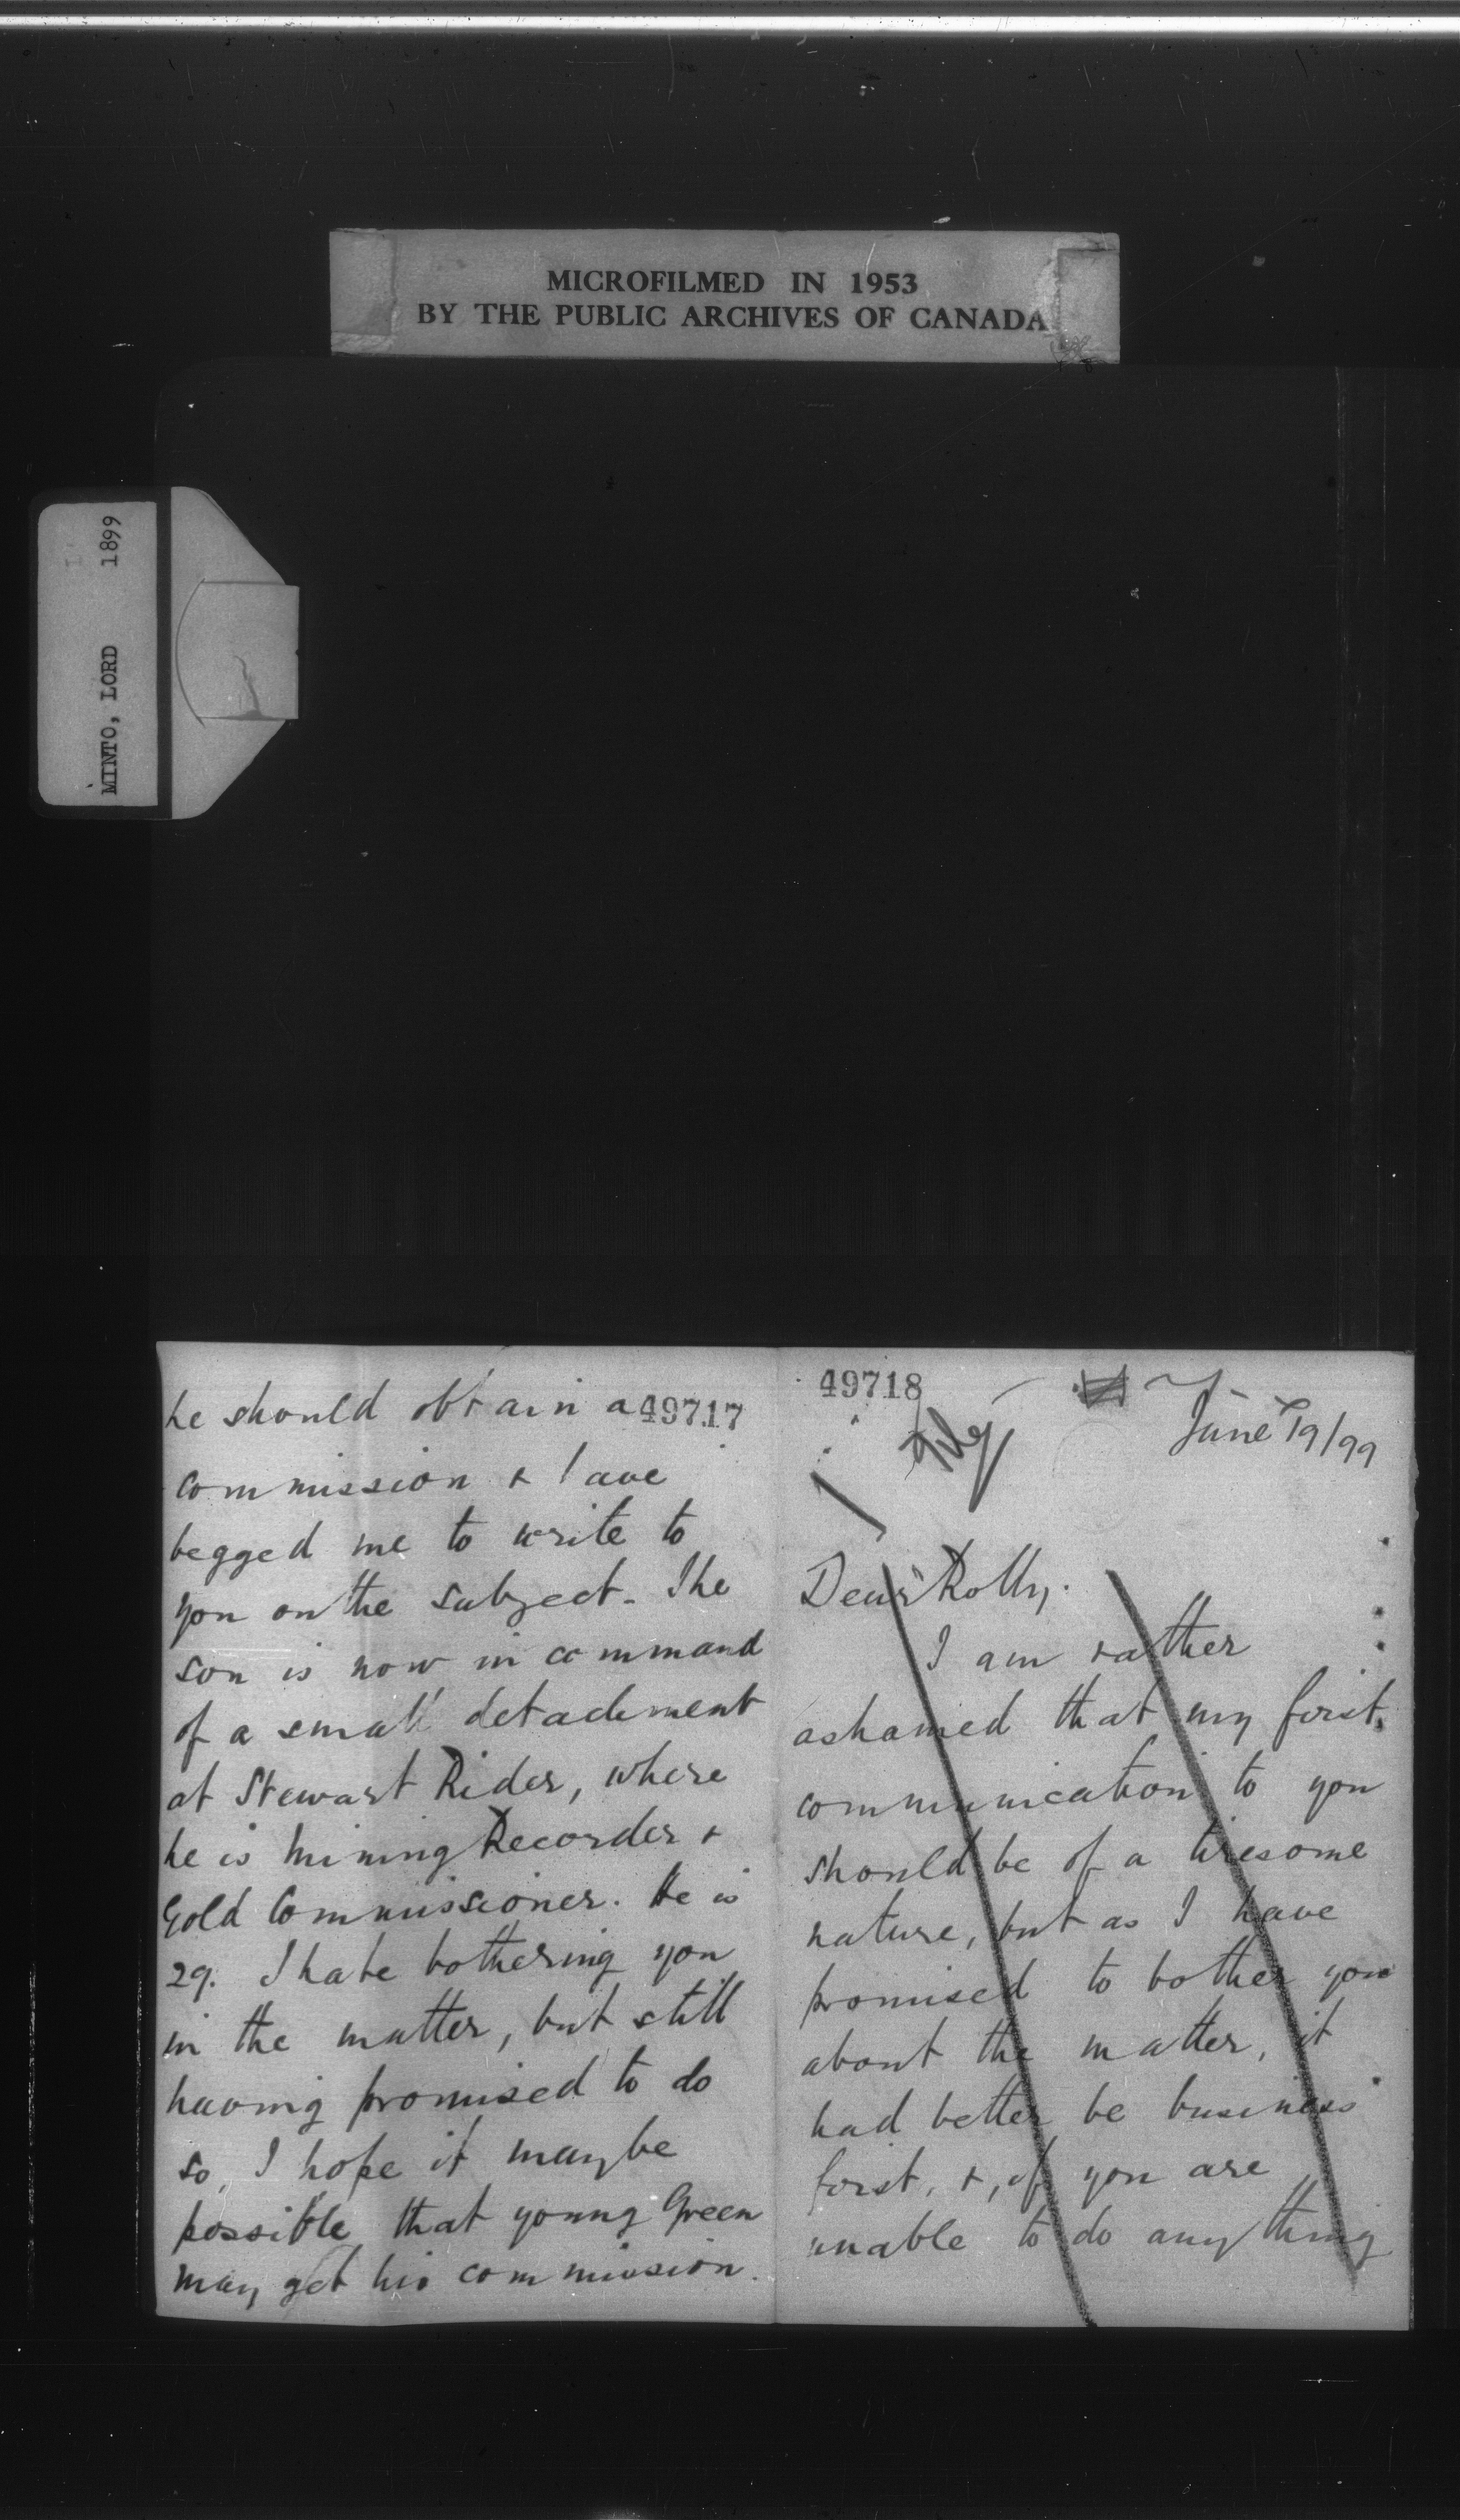 MICROFILMED IN 1953
BY THE PUBLIC ARCHIVES OF CANADA
MINTO, LORD 1899
he should obtain a 49717
commission & have
begged me to write to
you on the subject. The
son is now in command
of a small detachment
at Stewart River, where
he is Mining Recorder &
Gold Commissioner. He is
29. I hate bothering you
in the matter, but still
having promised to do
so, I hope it may be
possible that young Green
may get his commission.
49718
June 19/99
Dear Rolly.
I am rather
ashamed that my first
communication to you
should be of a tiresome
nature, but as I have
promised to bother you
about the matter, it
had better be business
first, &, if you are
unable to do anything